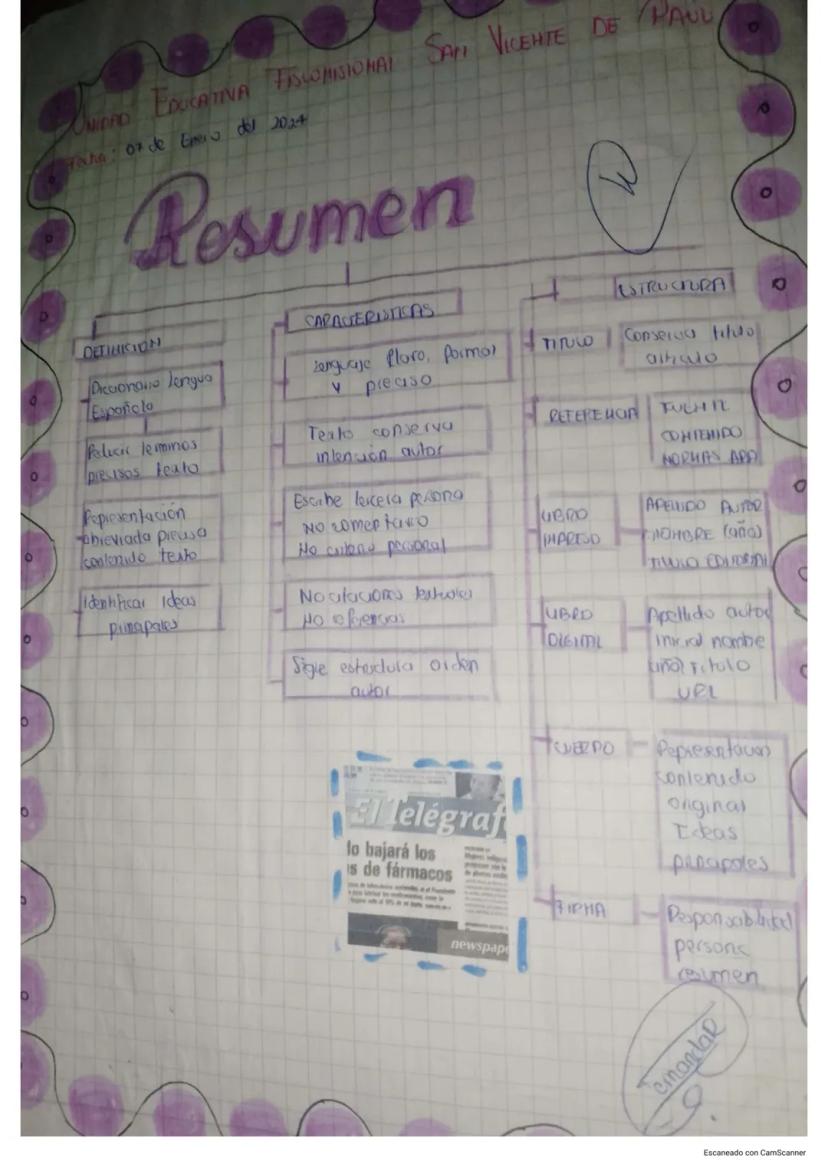 UNIDAD EDUCATIVA FISCOMISIONAL SAN VICENTE DE PAUL
Fecha: 07 de Enero del 2024
Resumen
DEFINICION
Diccionario lengua
Española
Reducir terminos
precisos texto
Representación
abreviada precisa
contenido texto
Identificar Ideas
principales
CARACTERISTICAS
Lenguaje Claro, Formal
y preciso
Texto conserva
intención autor
Escribe tercera persona
No comentario
No criterio personal
No citaciones textuales
No referencias
Sigue estructura orden
autor
ESTRUCTURA
TITULO
Conserva titulo
articulo
REFERENCIA
FUENTE
CONTENIDO
NORMAS APA
LIBRO
IMPRESO
APELLIDO AUTOR
NOMBRE (año)
TITULO EDITORIAL
LIBRO
DIGITAL
Apellido autor
inicial nombre
(año) Titulo
URL
CUERPO
Representacion
contenido
original
Ideas
principales
FIRMA
Responsabilidad
persona
resumen
El Telégraf
lo bajará los
s de fármacos
newspap
9.
Escaneado con CamScanner